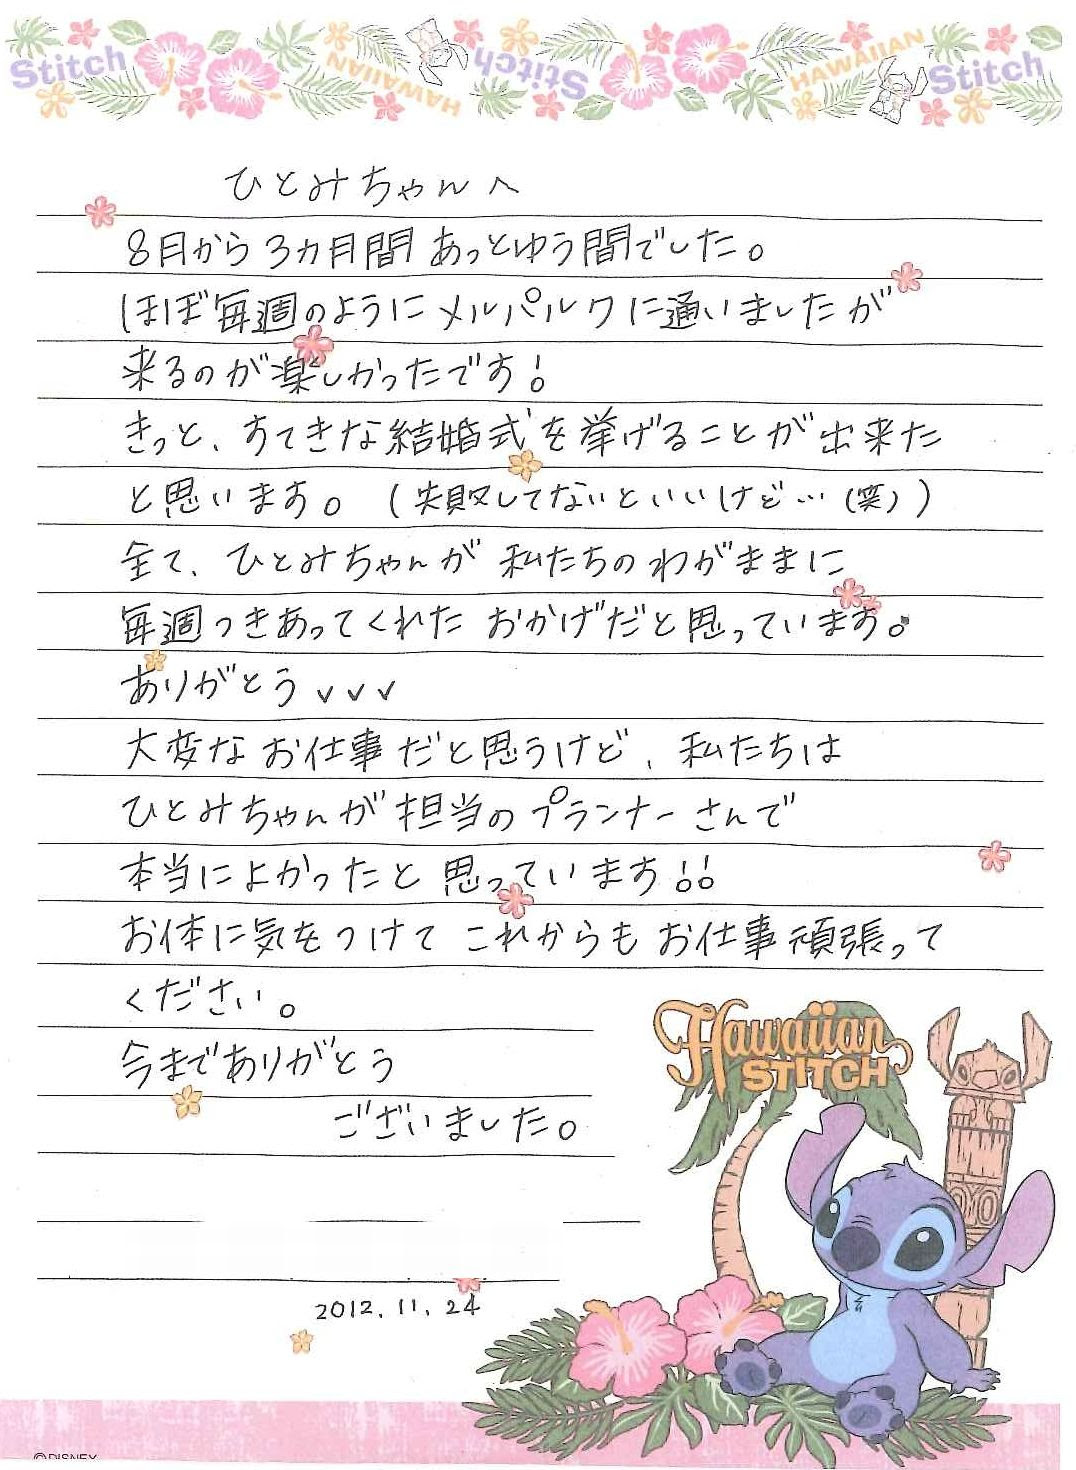 Stitch HAWAIIAN Stitch HAWAIIAN Stitch
ひとみちゃんへ
8月から3カ月間 あっとゆう間でした。
ほぼ毎週のようにメルパルクに通いましたが
来るのが楽しかったです!
きっと、すてきな結婚式を挙げることが出来た
と思います。(失敗してないといいけど…(笑))
全て、ひとみちゃんが 私たちのわがままに
毎週つきあってくれた おかげだと思っています。
ありがとう✓✓✓
大変な お仕事 だと思うけど、私たちは
ひとみちゃんが 担当の プランナー さんで
本当によかったと 思っています!!
お体に気をつけて これからも お仕事 頑張って
ください。
今までありがとう
ございました。
Hawaiian
STITCH
2012.11.24
©DISNEY